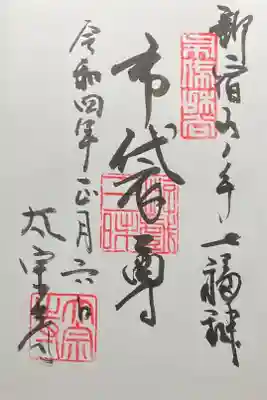 新宿山ノ手七福神
布袋尊
令和四年正月六日
太宗寺